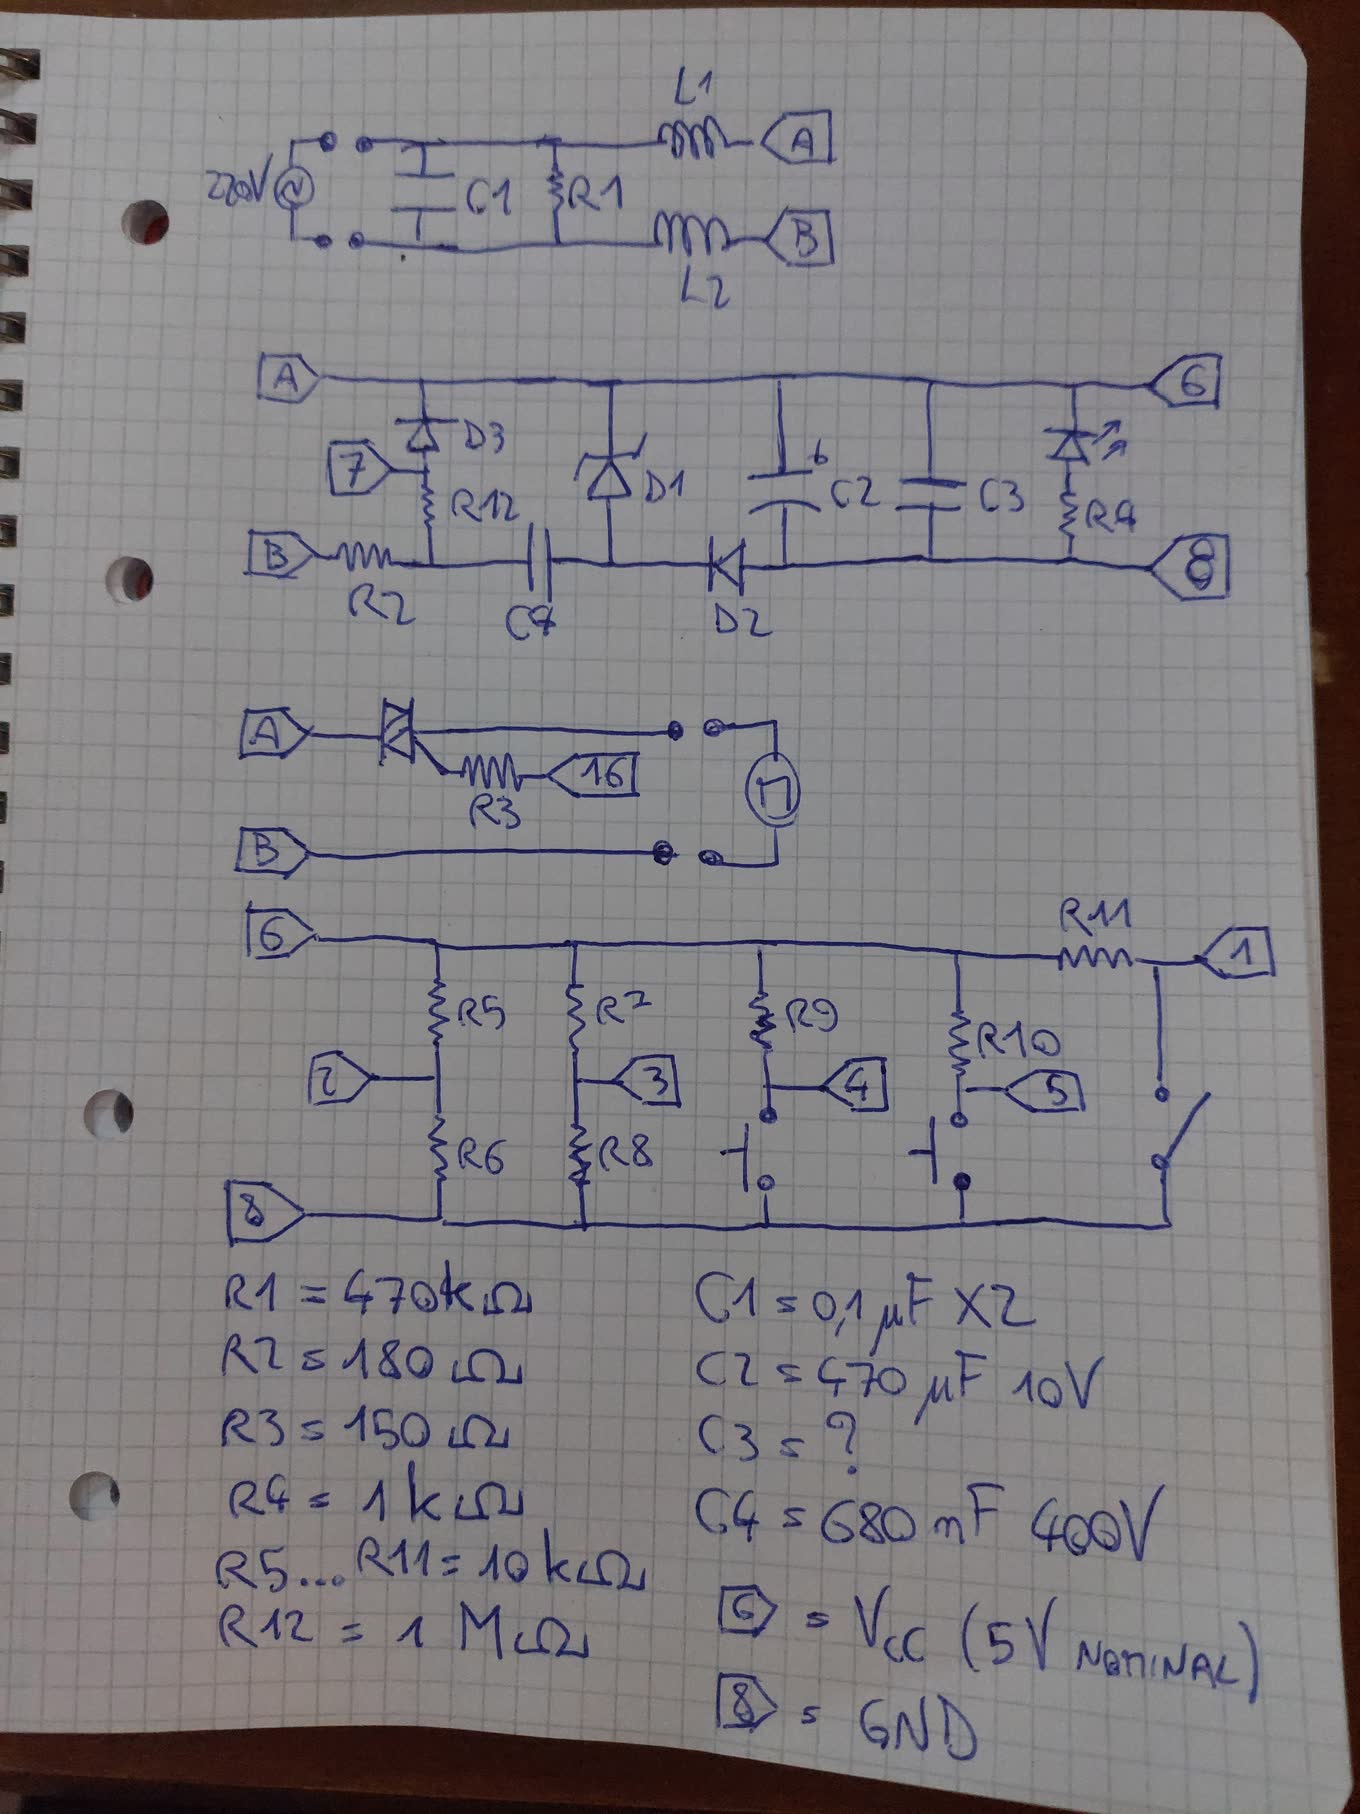 L1
A
220V
C1
R1
B
L2
A
6
7
D3
R12
D1
C2
C3
R4
B
8
R2
C4
D2
A
16
R3
B
6
R11
1
R5
R7
R9
R10
2
3
4
5
R6
R8
8
R1 = 470kΩ
C1 = 0,1 μF X2
R2 = 180 Ω
C2 = 470 μF 10V
R3 = 150 Ω
C3 = ?
R4 = 1 kΩ
C4 = 680 nF 400V
R5... R11 = 10 kΩ
6 = Vcc (5V NOMINAL)
R12 = 1 MΩ
8 = GND